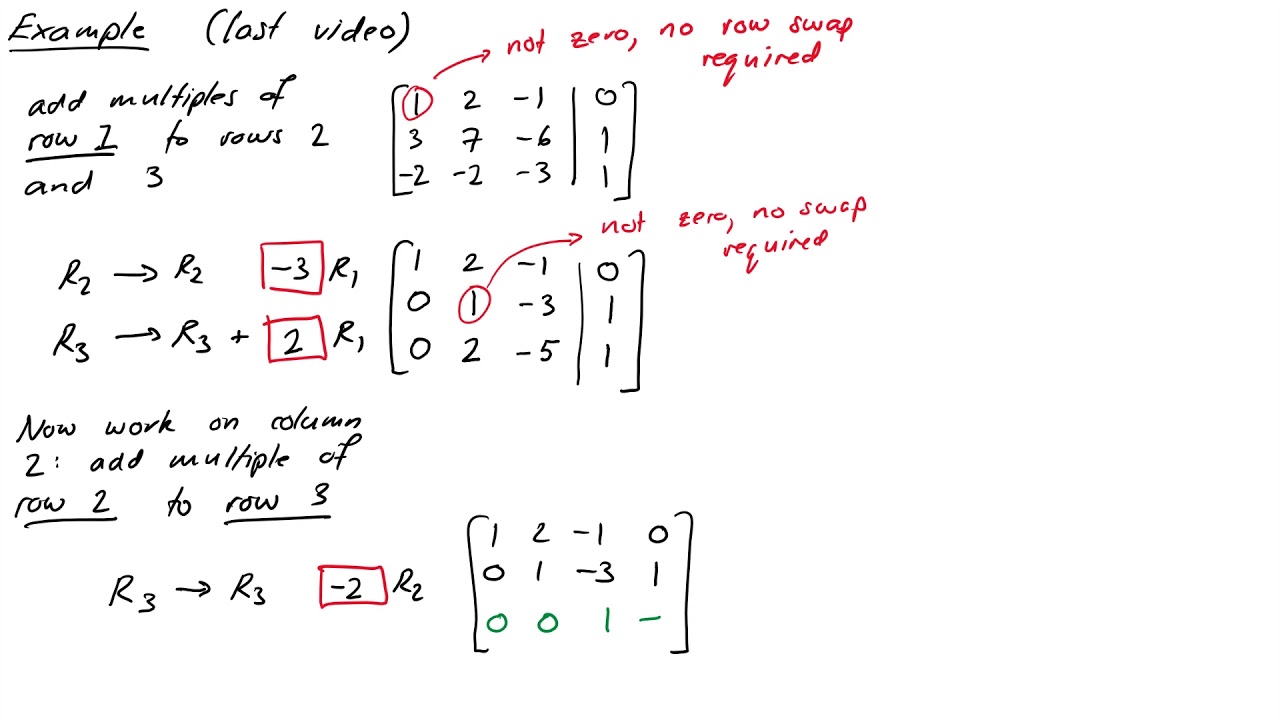 Example (last video)
not zero, no row swap
required
add multiples of
row 1 to rows 2
and 3
1 2 -1 | 0
3 7 -6 | 1
-2 -2 -3 | 1
not zero, no swap
required
R₂ → R₂ -3 R₁
R₃ → R₃ + 2 R₁
1 2 -1 | 0
0 1 -3 | 1
0 2 -5 | 1
Now work on column
2: add multiple of
row 2 to row 3
R₃ → R₃ -2 R₂
1 2 -1 0
0 1 -3 1
0 0 1 -